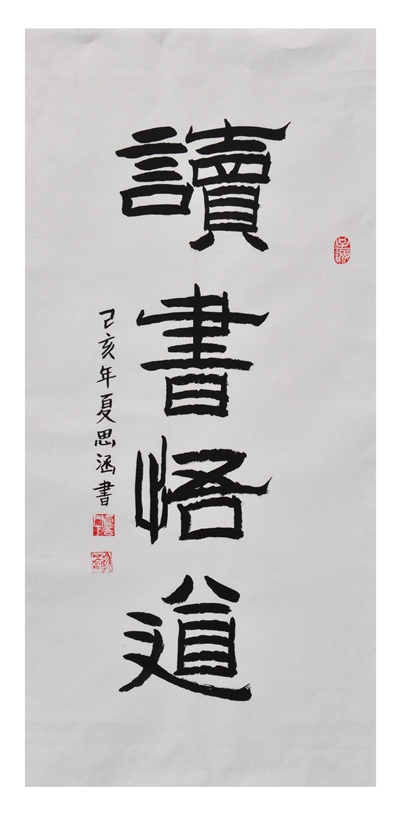 讀書悟道
己亥年夏思涵書